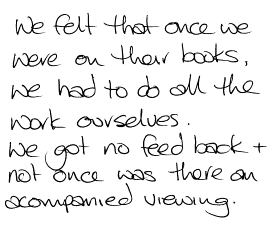 We felt that once we
were on their books,
we had to do all the
work ourselves.
We got no feed back +
not once was there an
acompanied viewing.